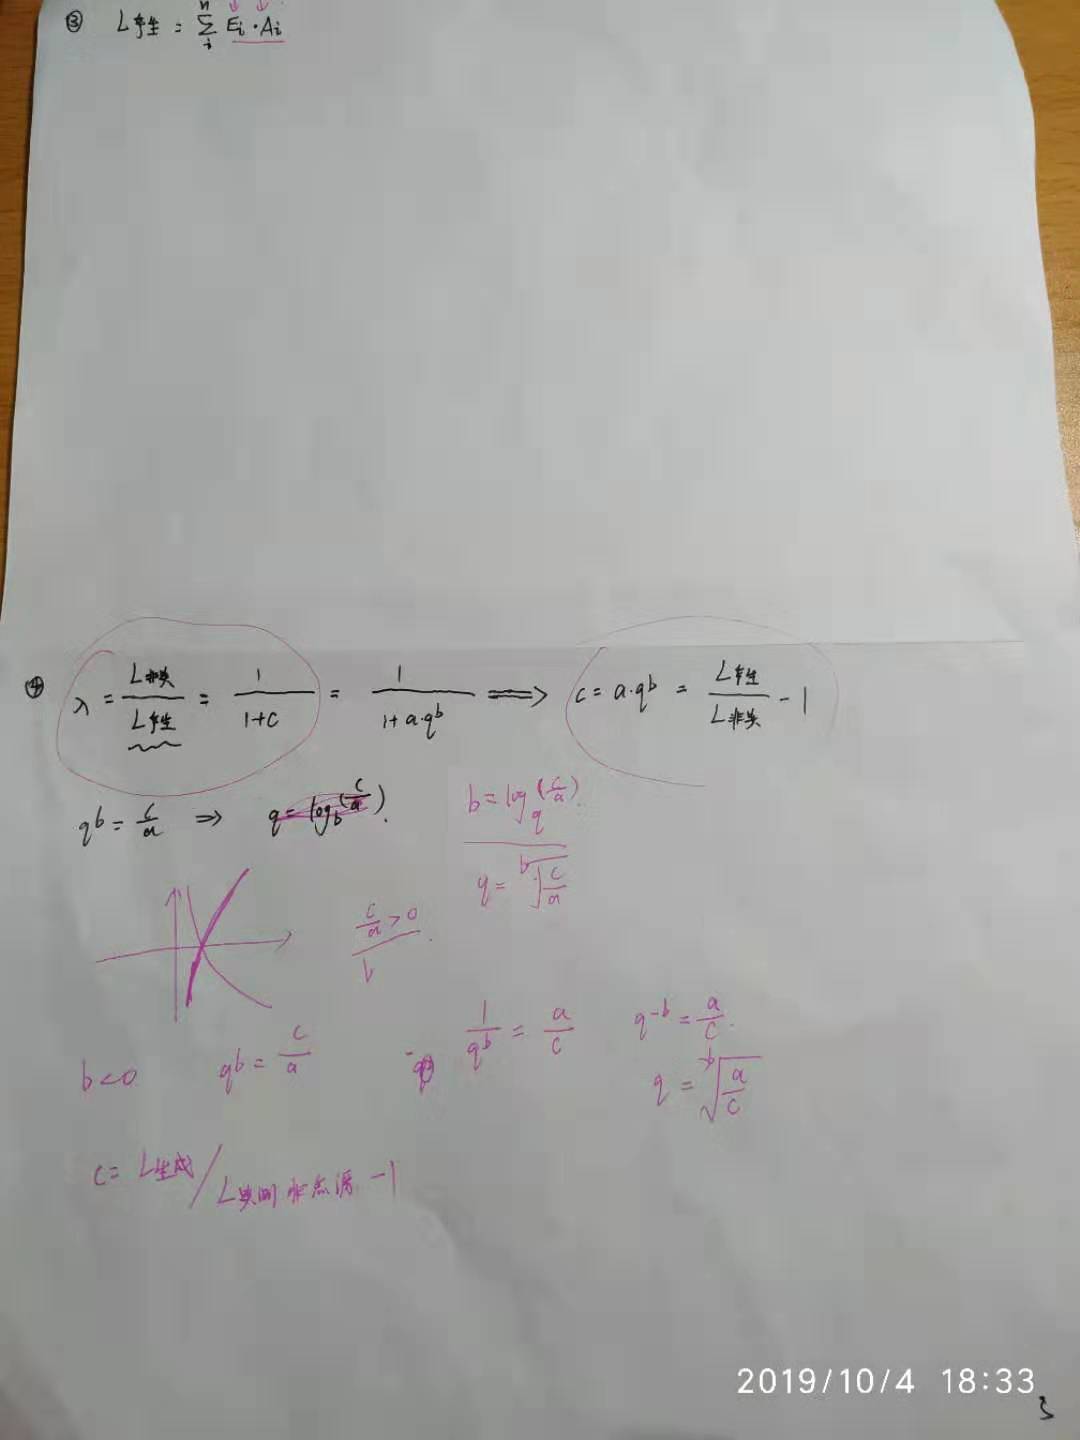 ③ L产生 = Σ_i^n Ei·Ai
④ λ = L非实/L产生 = 1/(1+c) = 1/(1+a·q^b) ⟹ c = a·q^b = L产生/L非实 - 1
q^b = c/a ⇒ q = log_b(c/a). b = log_q(c/a).
q = ᵇ√(c/a)
c/a > 0.
b
1/q^b = a/c q^-b = a/c.
b<0 q^b = c/a
q = ⁻ᵇ√(a/c)
c = L生成/L实测非点源 -1
2019/10/4 18:33
3